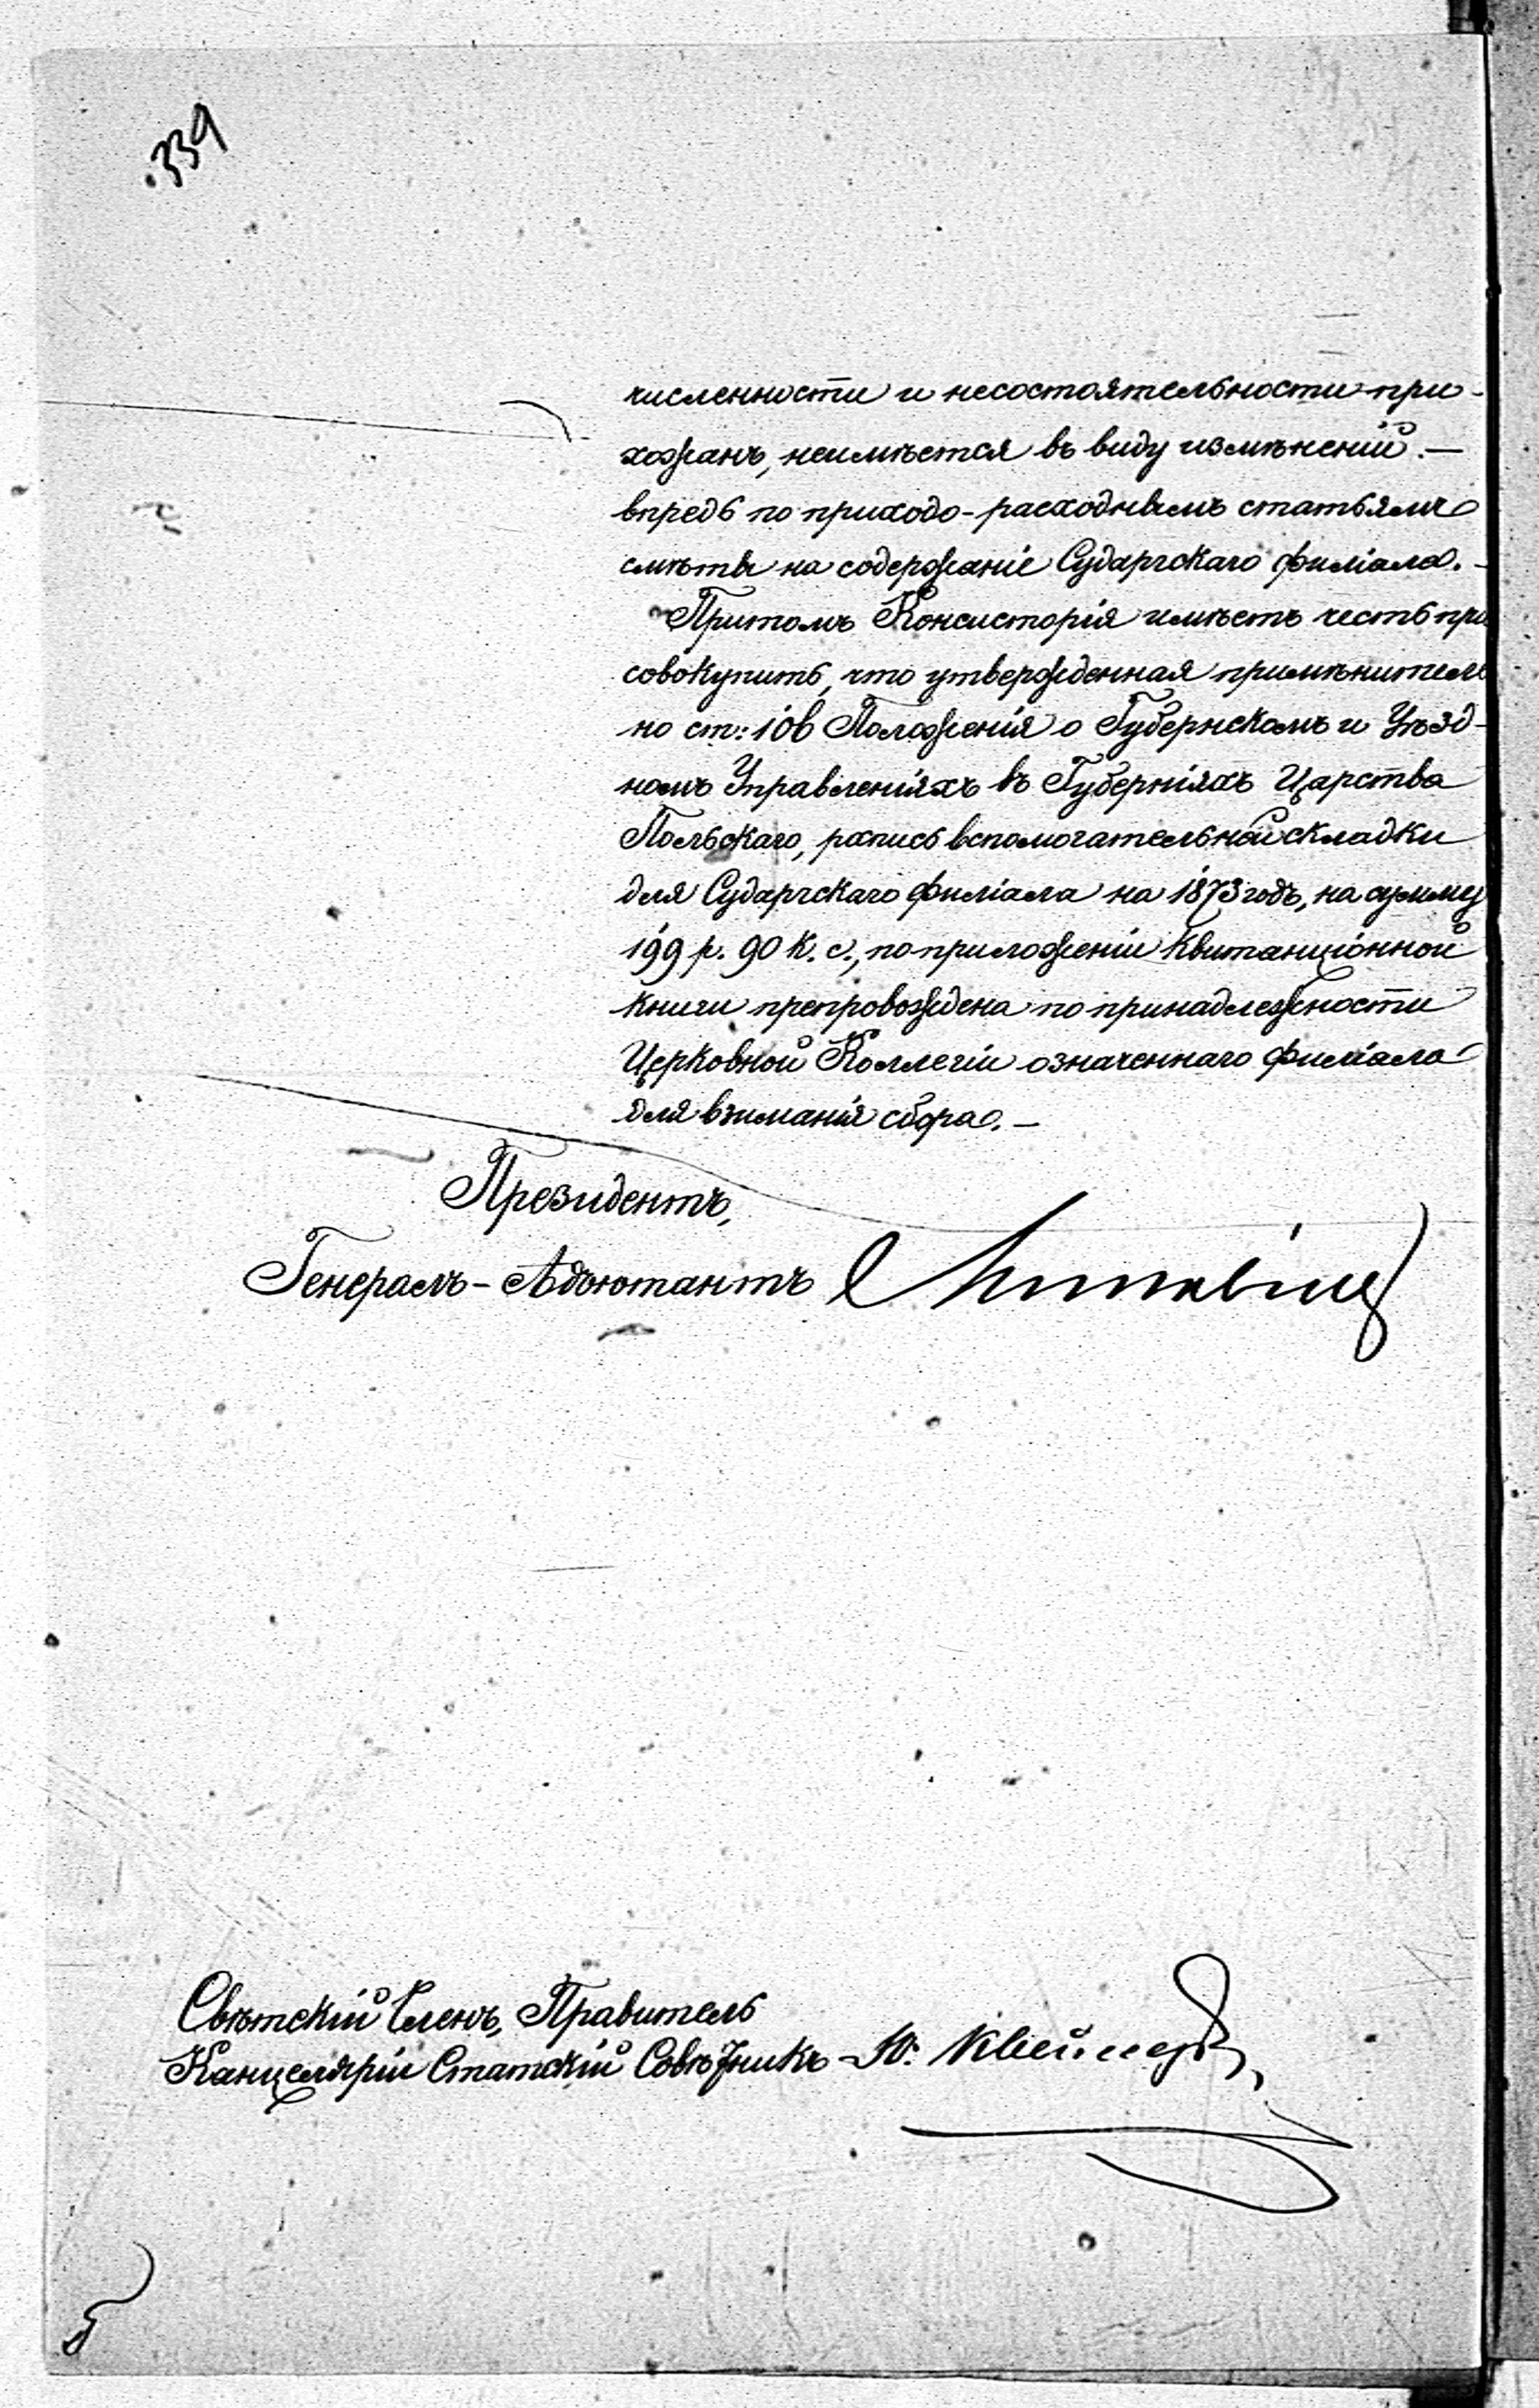 339
численности и несостоятельности при-
хожанъ, неимѣется въ виду измѣненій.—
впредь по приходо-расходнымъ статьямъ
смѣты на содержаніе Сударгскаго филіала.-
Притомъ Консисторія имѣетъ честь при
совокупить, что утвержденная примѣнитель
но ст: 106 Положенія о Губернскомъ и Уѣзд-
номъ Управленіяхъ въ Губерніяхъ Царства
Польскаго, роспись вспомогательной складки
для Сударгскаго филіала на 1873 годъ, на сумму
199 р. 90 к. с., по приложеніи квитанціонной
книги препровождена по принадлежности
Церковной Коллегіи означеннаго филіала
для взиманія сбора.—
Президентъ,
Генералъ-Адъютантъ
Свѣтскій Членъ, Правитель
Канцеляріи Статскій Совѣтникъ